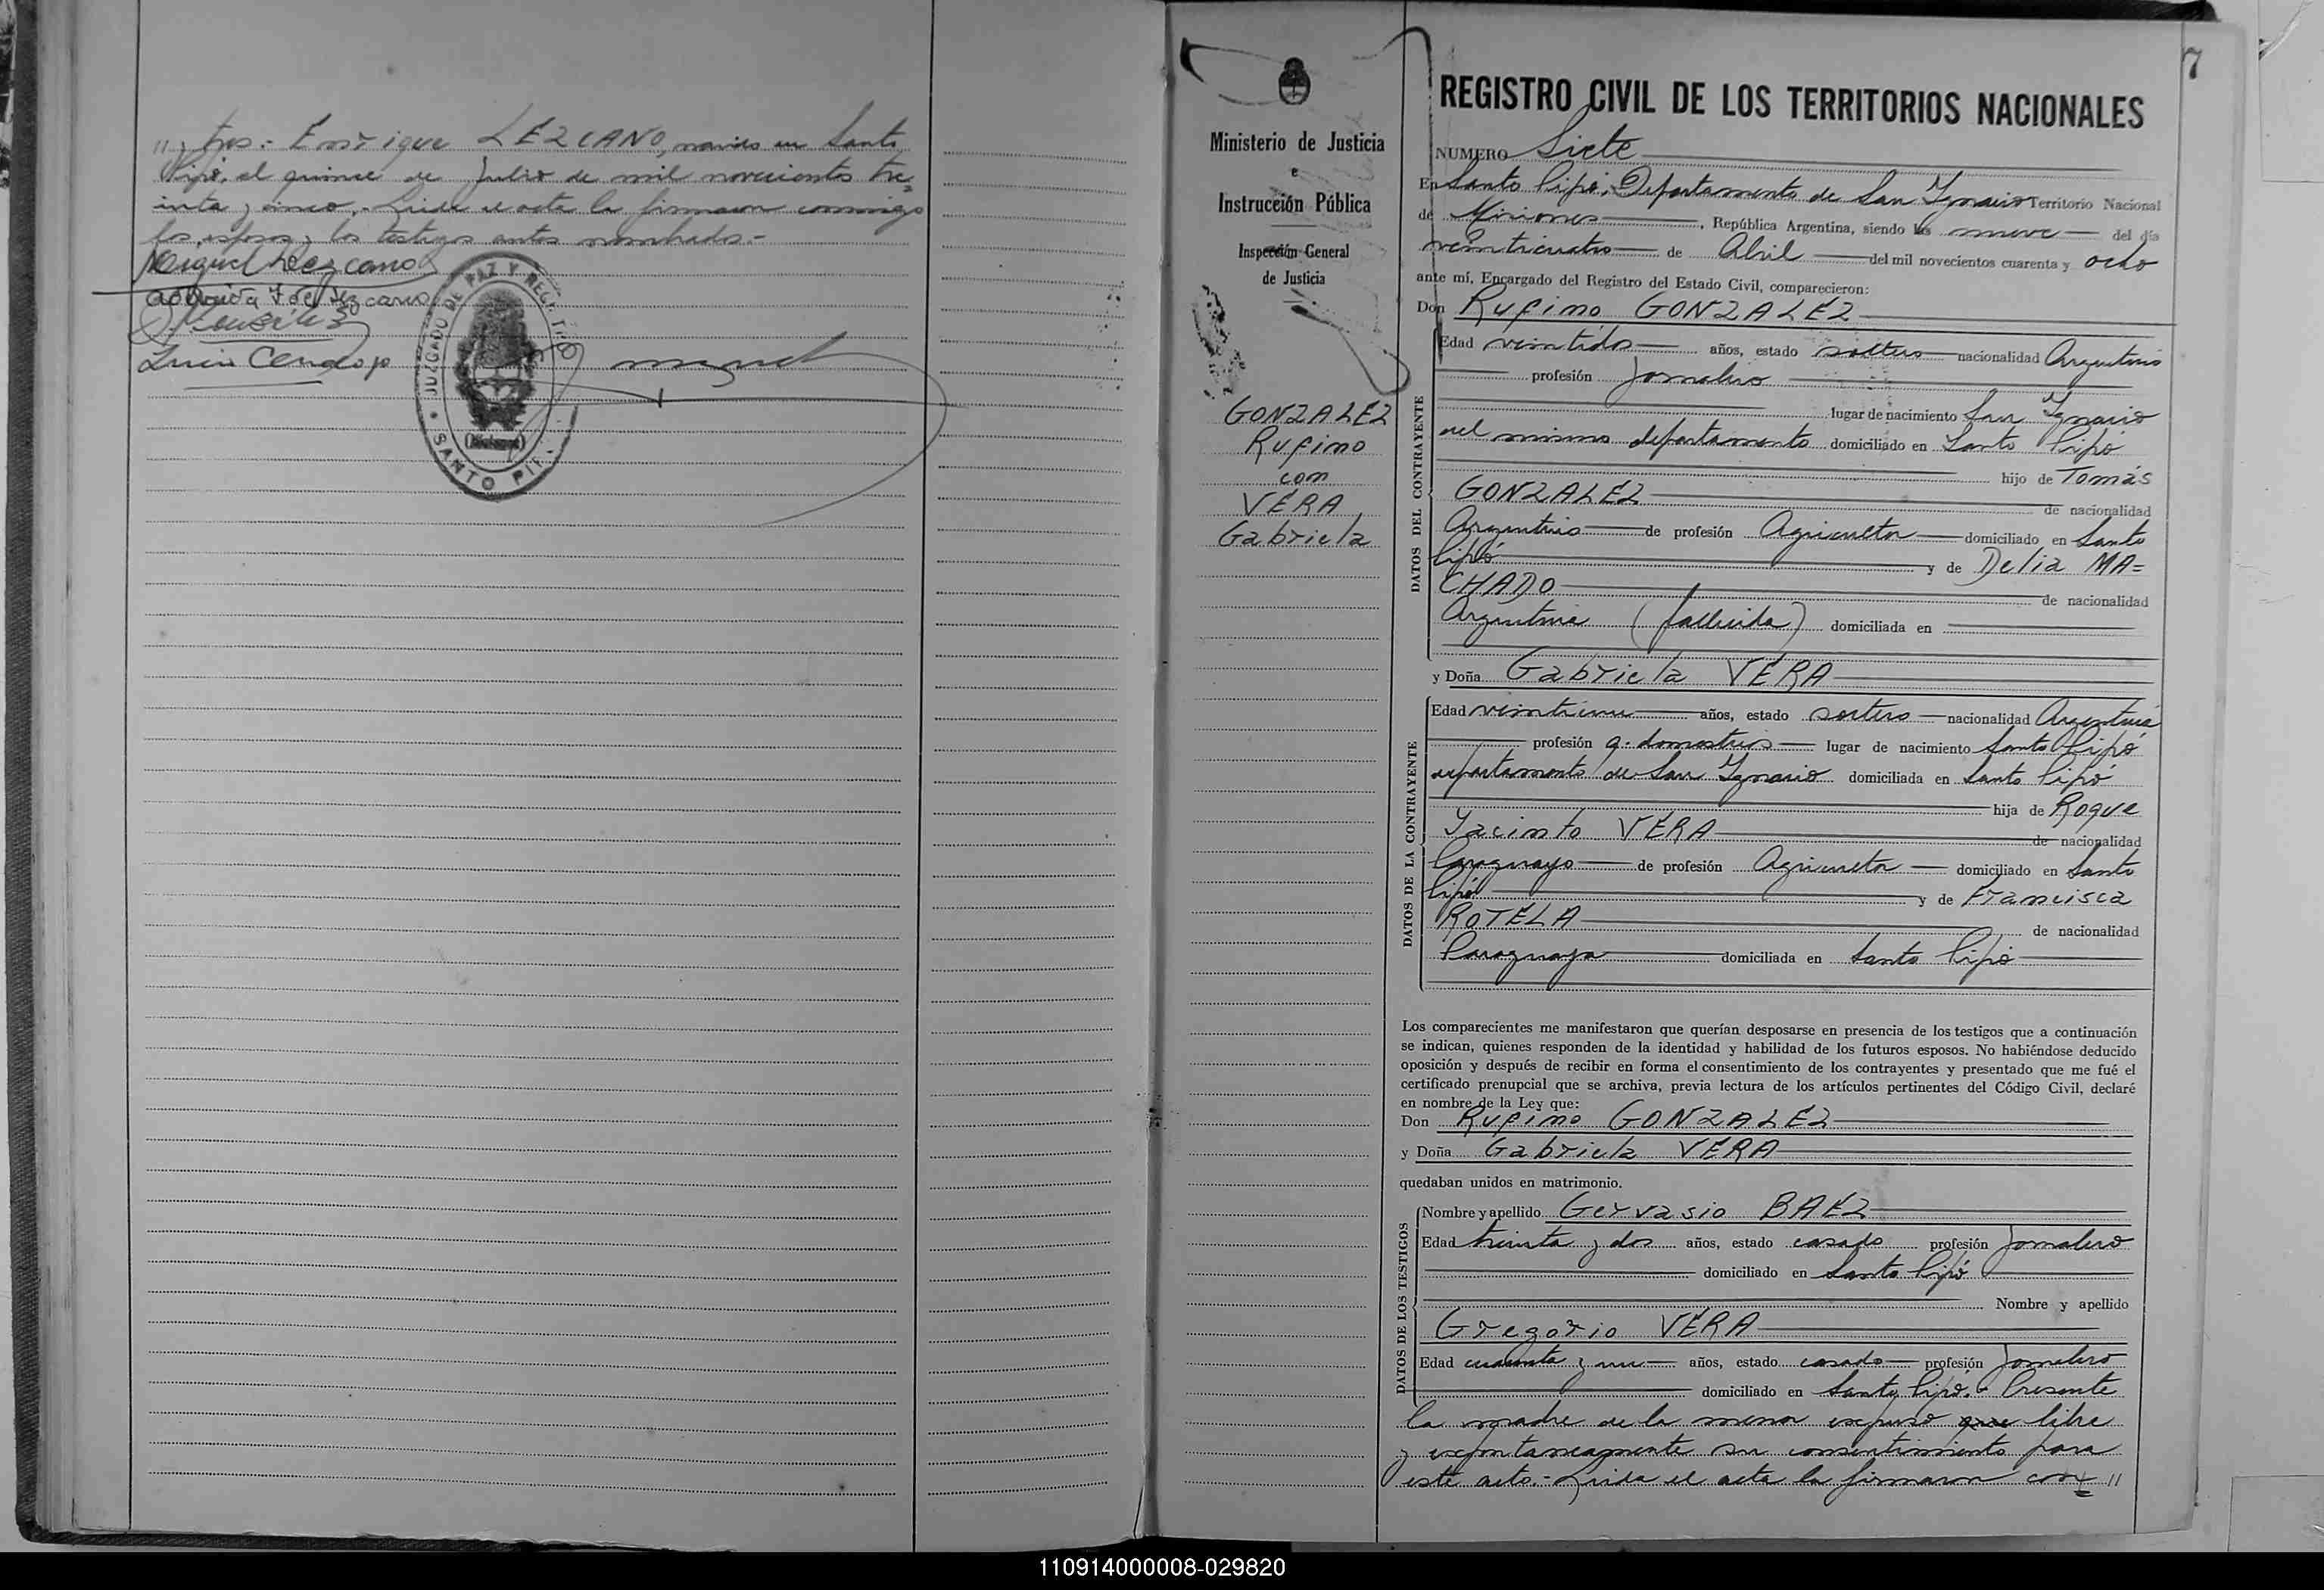 "tos: Enrique LEZCANO, nacido en Santo
Pipó, el quince de Julio de mil novecientos tre=
inta y cinco.- Leida el acta la firmaron conmigo
los esposos y los testigos antes nombrados.-
Miguel Lezcano
de Lezcano
Lucio Cendojo
JUZGADO DE PAZ Y REGISTRO
SANTO PIPÓ
7
Ministerio de Justicia
e
Instrucción Pública
Inspección General
de Justicia
GONZALEZ
Rufino
con
VERA
Gabriela
REGISTRO CIVIL DE LOS TERRITORIOS NACIONALES
NUMERO Siete
En Santo Pipó, Departamento de San Ignacio Territorio Nacional
de Misiones, República Argentina, siendo las nueve del día
veinticuatro de Abril del mil novecientos cuarenta y ocho
ante mí, Encargado del Registro del Estado Civil, comparecieron:
Don Rufino GONZALEZ
DATOS DEL CONTRAYENTE
Edad veintidos años, estado soltero nacionalidad Argentino
profesión Jornalero
lugar de nacimiento San Ignacio
del mismo departamento domiciliado en Santo Pipó
hijo de Tomás
GONZALEZ de nacionalidad
Argentino de profesión Agricultor domiciliado en Santo
Pipó y de Delia MA=
CHADO de nacionalidad
Argentina (fallecida) domiciliada en
y Doña Gabriela VERA
DATOS DE LA CONTRAYENTE
Edad años, estado soltera nacionalidad Argentina
profesión q. domesticos lugar de nacimiento Santo Pipó
departamento de San Ignacio domiciliada en Santo Pipó
hija de Roque
Jacinto VERA de nacionalidad
Paraguayo de profesión Agricultor domiciliado en Santo
Pipó y de Francisca
ROTELA de nacionalidad
Paraguaya domiciliada en Santo Pipó
Los comparecientes me manifestaron que querían desposarse en presencia de los testigos que a continuación
se indican, quienes responden de la identidad y habilidad de los futuros esposos. No habiéndose deducido
oposición y después de recibir en forma el consentimiento de los contrayentes y presentado que me fué el
certificado prenupcial que se archiva, previa lectura de los artículos pertinentes del Código Civil, declaré
en nombre de la Ley que:
Don Rufino GONZALEZ
y Doña Gabriela VERA
quedaban unidos en matrimonio.
DATOS DE LOS TESTIGOS
Nombre y apellido Gervasio BAEZ
Edad treinta y dos años, estado casado profesión Jornalero
domiciliado en Santo Pipó
Nombre y apellido
Gregorio VERA
Edad cuarenta y un años, estado casado profesión Jornalero
domiciliado en Santo Pipó.- Presente
la madre de la menor expresó que libre
y expontaneamente su consentimiento para
este acto.- Leida el acta la firmaron con "
110914000008-029820